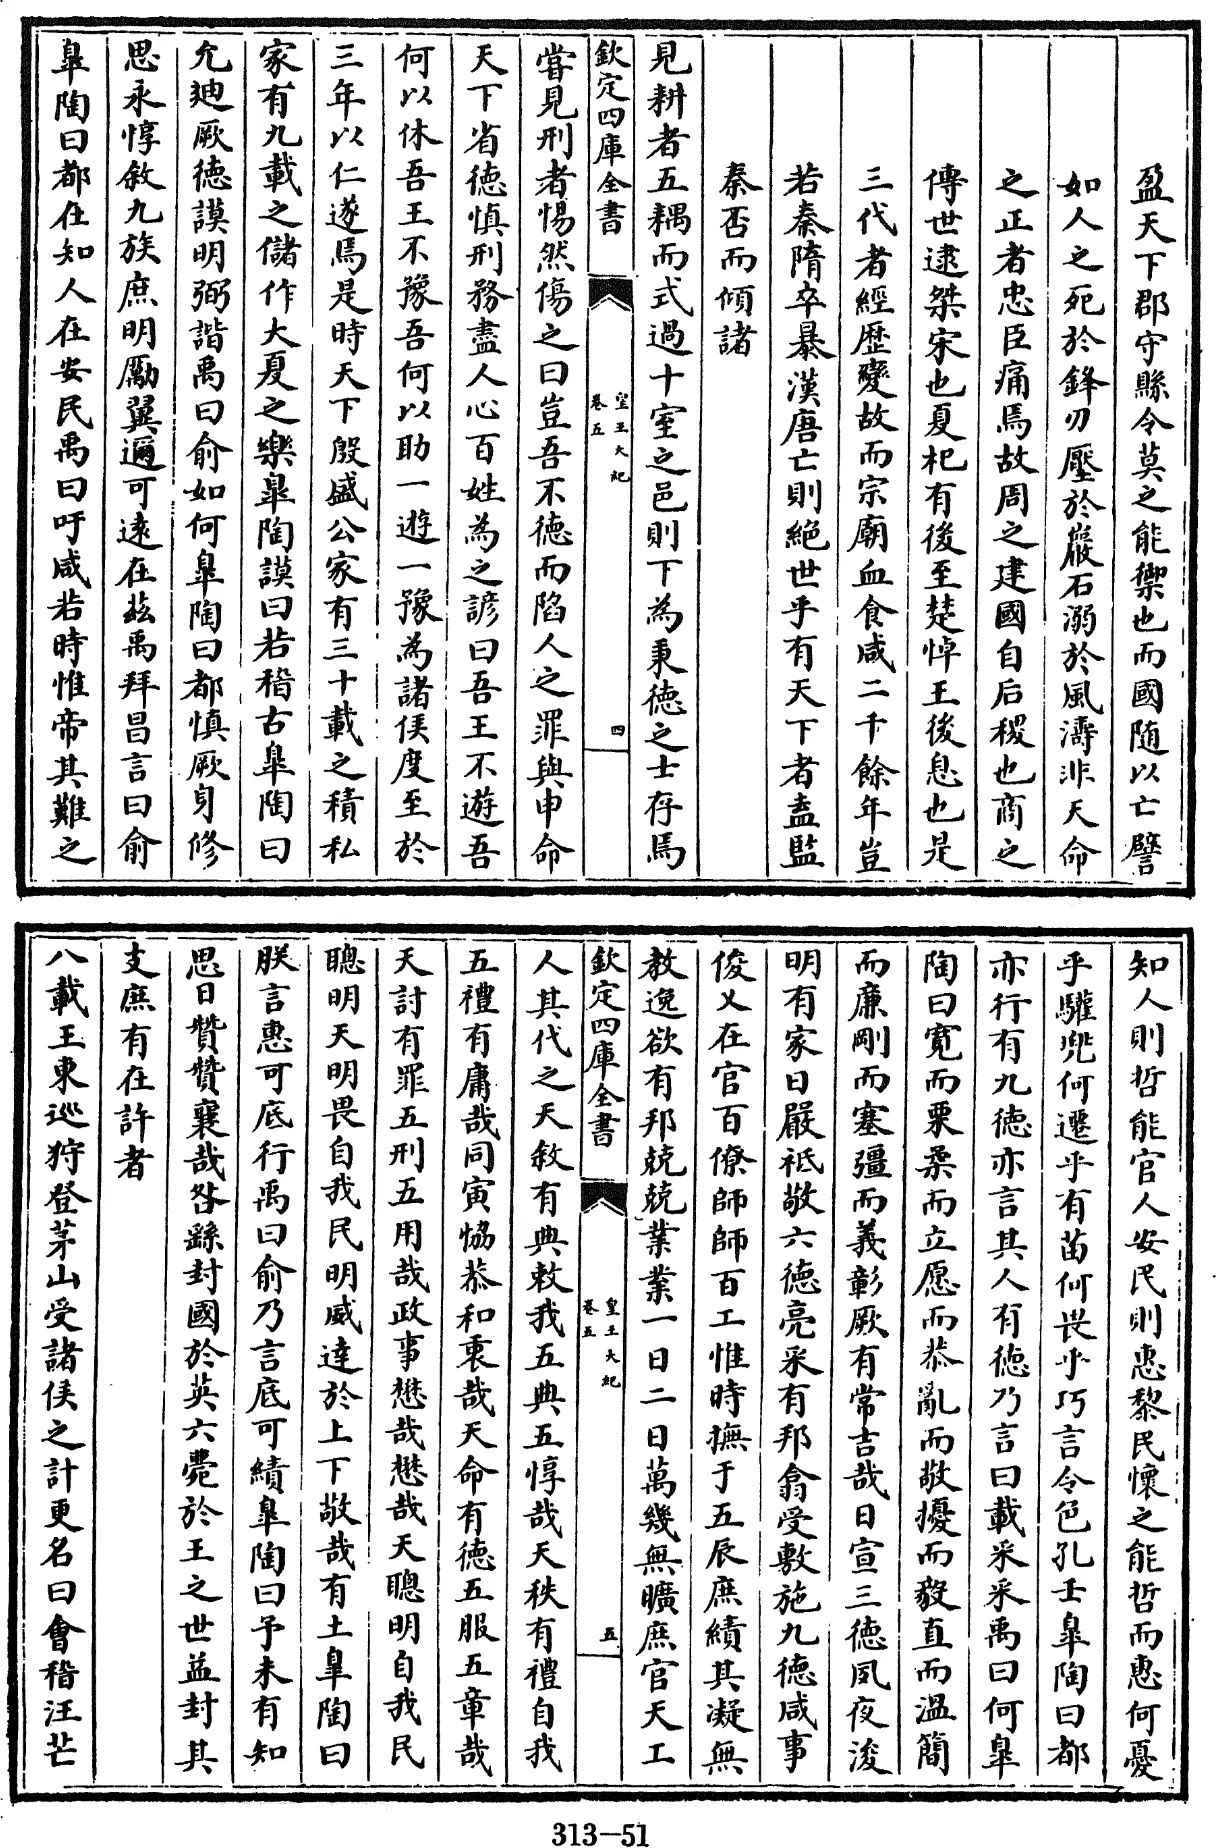 盈天下郡守縣令莫之能禦也而國随以亡譬
如人之死於鋒刃壓於巖石溺於風濤非天命
之正者忠臣痛焉故周之建國自后稷也商之
傳世逮桀宋也夏杞有後至楚悼王後息也是
三代者經歴變故而宗廟血食咸二千餘年豈
若秦隋卒暴漢唐亡則絶世乎有天下者盍監
秦否而傾諸
見耕者五耦而式過十室之邑則下為秉徳之士存焉
欽定四庫全書
皇王大紀
卷五
四
嘗見刑者惕然傷之曰豈吾不德而陷人之罪與申命
天下省徳慎刑務盡人心百姓為之諺曰吾王不遊吾
何以休吾王不豫吾何以助一遊一豫為諸侯度至於
三年以仁遂焉是時天下殷盛公家有三十載之積私
家有九載之儲作大夏之樂臯陶謨曰若稽古臯陶曰
允廸厥徳謨明弼諧禹曰俞如何臯陶曰都慎厥身修
思永惇敘九族庶明勵翼邇可逺在兹禹拜昌言曰俞
臯陶曰都在知人在安民禹曰吁咸若時惟帝其難之
知人則哲能官人安民則恵黎民懷之能哲而惠何憂
乎驩兜何遷乎有苗何畏乎巧言令色孔壬臯陶曰都
亦行有九徳亦言其人有徳乃言曰載采采禹曰何臯
陶曰寛而栗柔而立愿而恭亂而敬擾而毅直而溫簡
而廉剛而塞彊而義彰厥有常吉哉日宣三徳夙夜浚
明有家日嚴祗敬六徳亮采有邦翕受敷施九徳咸事
俊乂在官百僚師師百工惟時撫于五辰庶績其凝無
教逸欲有邦兢兢業業一日二日萬幾無曠庶官天工
欽定四庫全書
皇王大紀
卷五
五
人其代之天敘有典敕我五典五惇哉天秩有禮自我
五禮有庸哉同寅恊恭和衷哉天命有徳五服五章哉
天討有罪五刑五用哉政事懋哉懋哉天聰明自我民
聰明天明畏自我民明威達於上下敬哉有土臯陶曰
朕言惠可底行禹曰俞乃言底可績臯陶曰予未有知
思曰贊贊襄哉咎繇封國於英六薨於王之世益封其
支庶有在許者
八載王東巡狩登茅山受諸侯之計更名曰會稽汪芒
313-51